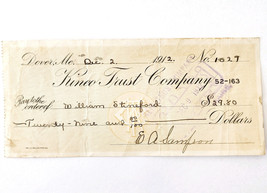 Dover, Me. Dec 2, 1912 No. 1027
Kineo Trust Company 52-163
Pay to the order of William Stineford $29.80
Twenty-Nine and 80/100 Dollars
E A Sampson